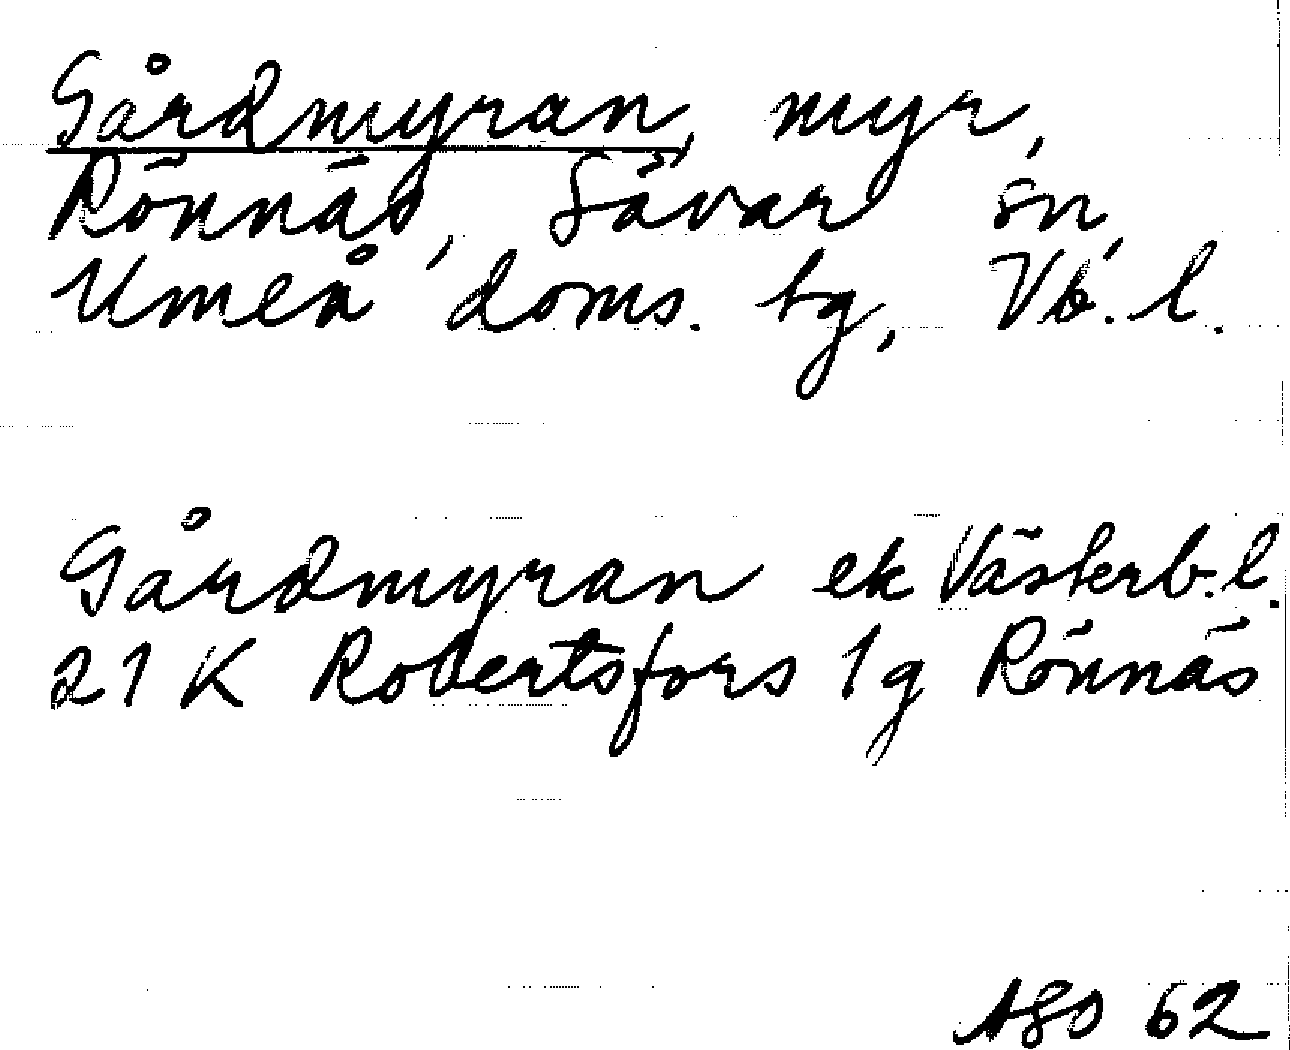 Gårdmyran, myr,
Rönnäs, Sävar sn,
Umeå doms. tg, Vb. l.
Gårdmyran ek Västerb. l.
21 K Robertsfors 1 g Rönnäs
62